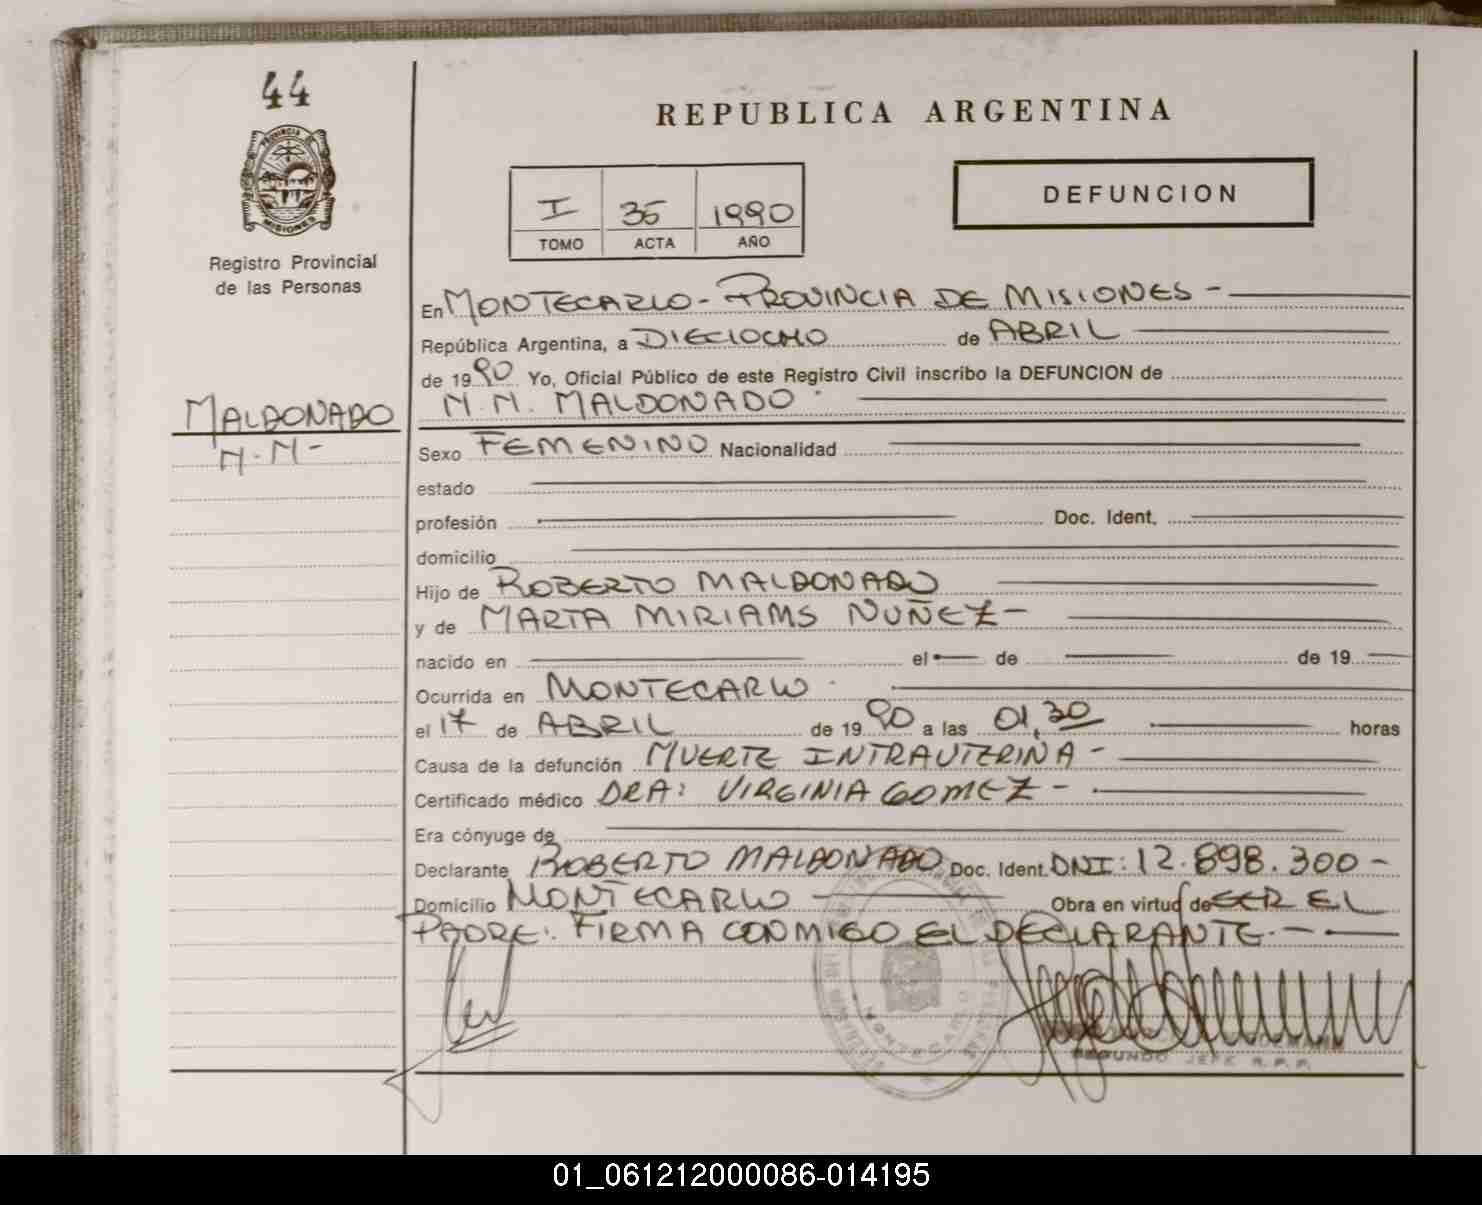 44
PROVINCIA DE
MISIONES
Registro Provincial
de las Personas
REPUBLICA ARGENTINA
I 35 1990
TOMO ACTA AÑO
DEFUNCION
En MONTECARLO - PROVINCIA DE MISIONES -
República Argentina, a DIECIOCHO de ABRIL
de 1990 Yo, Oficial Público de este Registro Civil inscribo la DEFUNCION de
MALDONADO
N.N. MALDONADO
N.N-
Sexo FEMENINO Nacionalidad
estado
profesión Doc. Ident.
domicilio
Hijo de ROBERTO MALDONADO
y de MARTA MIRIAMS NUÑEZ -
nacido en el de de 19
Ocurrida en MONTECARLO
el 17 de ABRIL de 1990 a las 01,30 horas
Causa de la defunción MUERTE INTRAUTERINA -
Certificado médico DRA: VIRGINIA GOMEZ -
Era cónyuge de
Declarante ROBERTO MALDONADO Doc. Ident. DNI: 12.898.300 -
Domicilio MONTECARLO Obra en virtud de SER EL
PADRE: FIRMA CONMIGO EL DECLARANTE. -
MONTECARLO
SEGUNDO JEFE R.P.P.
01_061212000086-014195